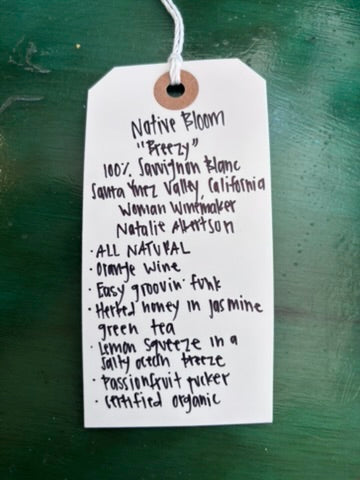 Native Bloom
"Breezy"
100% Sauvignon Blanc
Santa Ynez Valley, California
Woman Winemaker
Natalie Albertson
· ALL NATURAL
· Orange Wine
· Easy groovin' funk
· Herbed honey in jasmine
green tea
· Lemon squeeze in a
salty ocean breeze
· Passionfruit pucker
· Certified organic